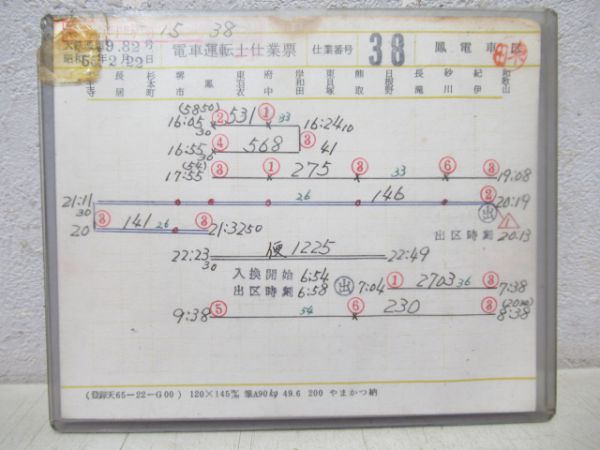 15 38
9.82号 電車運転士仕業票 仕業番号 38 鳳電車区
昭和 年2月22日
寺 長居 杉本町 堺市 鳳 東羽衣 府中 岸和田 東貝塚 熊取 日根野 長滝 砂川 紀伊 和歌山
(5850) ② 531 ① 33
16:05 30 16:24 10
④ 568 ③
16:55 30 41
(54) ① 275 ③ 33 ⑥ ③
17:55 19:08
21:11 30 26 146 ② 20:19
③ 141 26 ③ 出
20 21:32 50 出区時刻 20:13
22:23 30 便1225 22:49
入換開始 6:54
出区時刻 6:58 出 7:04 ① 2703 36 ③ 7:38
⑤ 54 ⑥ 230 ③
9:38 8:38
(登録天65-22-G00) 120×145㎜ 准A90kg 49.6 200 やまかつ納